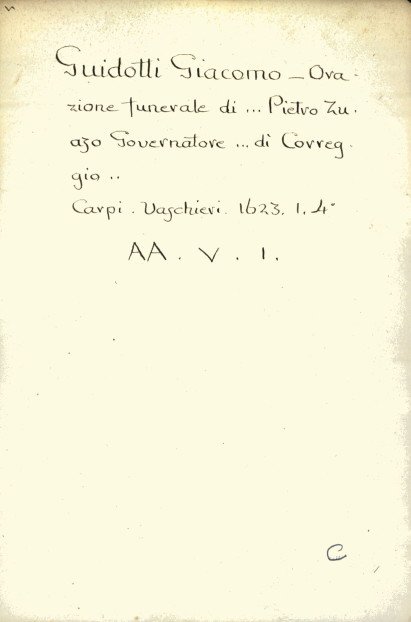 Guidotti Giacomo – Ora-
zione funerale di ... Pietro Zu-
azo Governatore ... di Correg-
gio ..
Carpi. Vaschieri. 1623. 1. 4°
AA. V. 1.
C